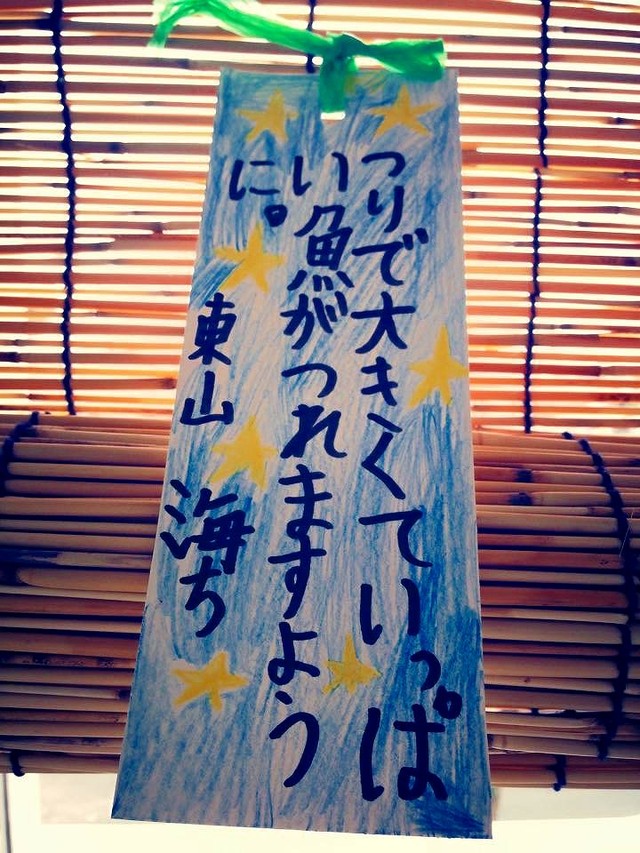 つりで大きくていっぱ
い魚がつれますよう
に。
東山 海ち